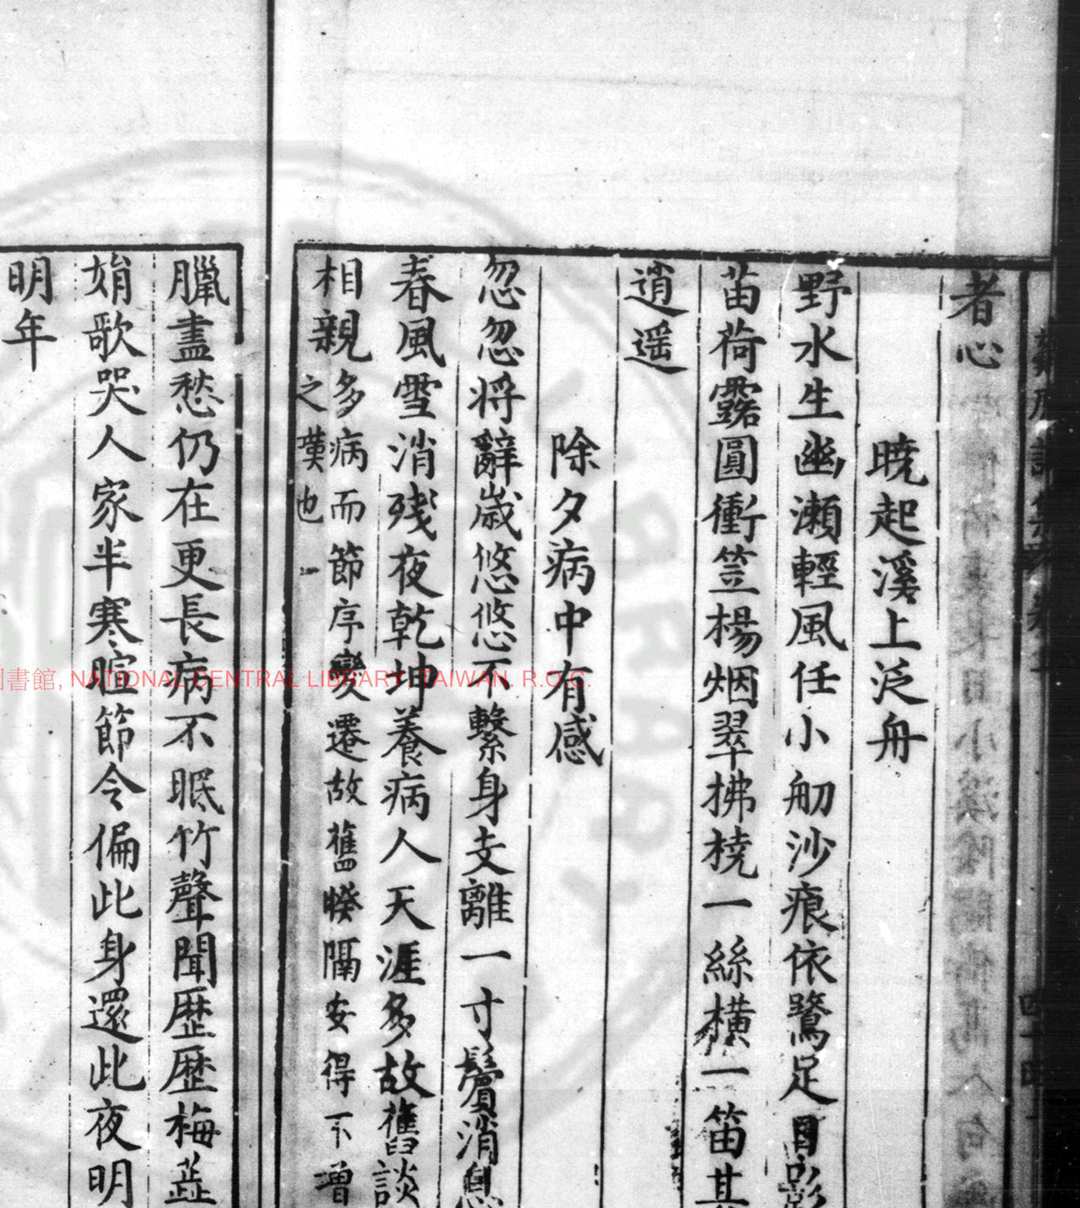 者心
曉起溪上泛舟
野水生幽瀨輕風任小舠沙痕依鷺足
苗荷露圓衝笠楊烟翠拂橈一絲橫一笛其
逍遥
除夕病中有感
忽忽将辭歲悠悠不繫身支離一寸鬢消息
春風雪消殘夜乾坤養病人天涯多故舊談
相親多病而節序變遷故舊暌隔安得不增
之嘆也
臘盡愁仍在更長病不眠竹聲聞歷歷梅蕋
娟歌哭人家半寒暄節令偏此身還此夜明
明年
四十四
國書館, NATIONAL CENTRAL LIBRARY, TAIWAN, R.O.C.